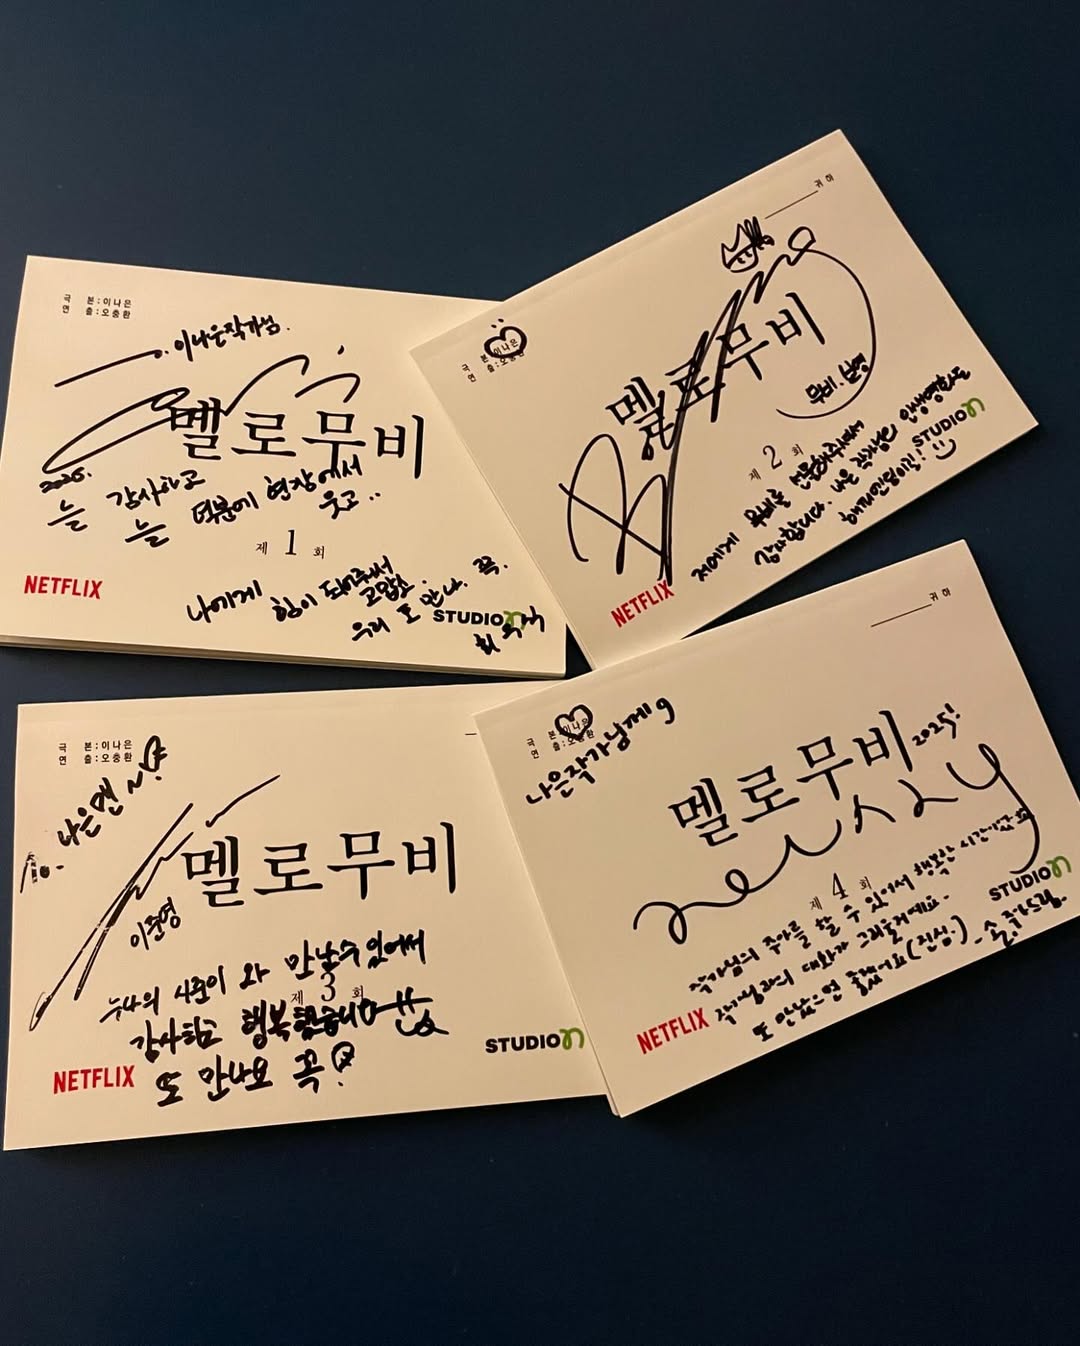 극 본:이나은
연 출:오충환
이나은작가님.
멜로무비
2025.
늘 감사하고
늘 덕분에 현장에서
웃고..
제 1 회
나에게 힘이 되어주셔
고맙소.
우리 또 만나. 꼭.
최우식
NETFLIX
STUDIO n
귀하
극 본:이나은
연 출:오충환
멜로무비
무비.보영
제 2 회
저에게 무비를 선물해주셔서
감사합니다. 나은 작가님의 인생영화도
해피엔딩이길!
NETFLIX
STUDIO n
극 본:이나은
연 출:오충환
To. 나은맨~
멜로무비
이준영
누나의 시준이 와 만날수있어서
제 3 회
감사하고 행복했습니다
또 만나요 꼭!
NETFLIX
STUDIO n
귀하
극 본:이나은
연 출:오충환
나은작가님께
멜로무비
2025!
제 4 회
작가님의 주아를 할 수 있어서 행복한 시간이었고
작가님과의 대화가 그리울거예요.
또 만났으면 좋겠어요(진심.)
-손주아드림.
NETFLIX
STUDIO n